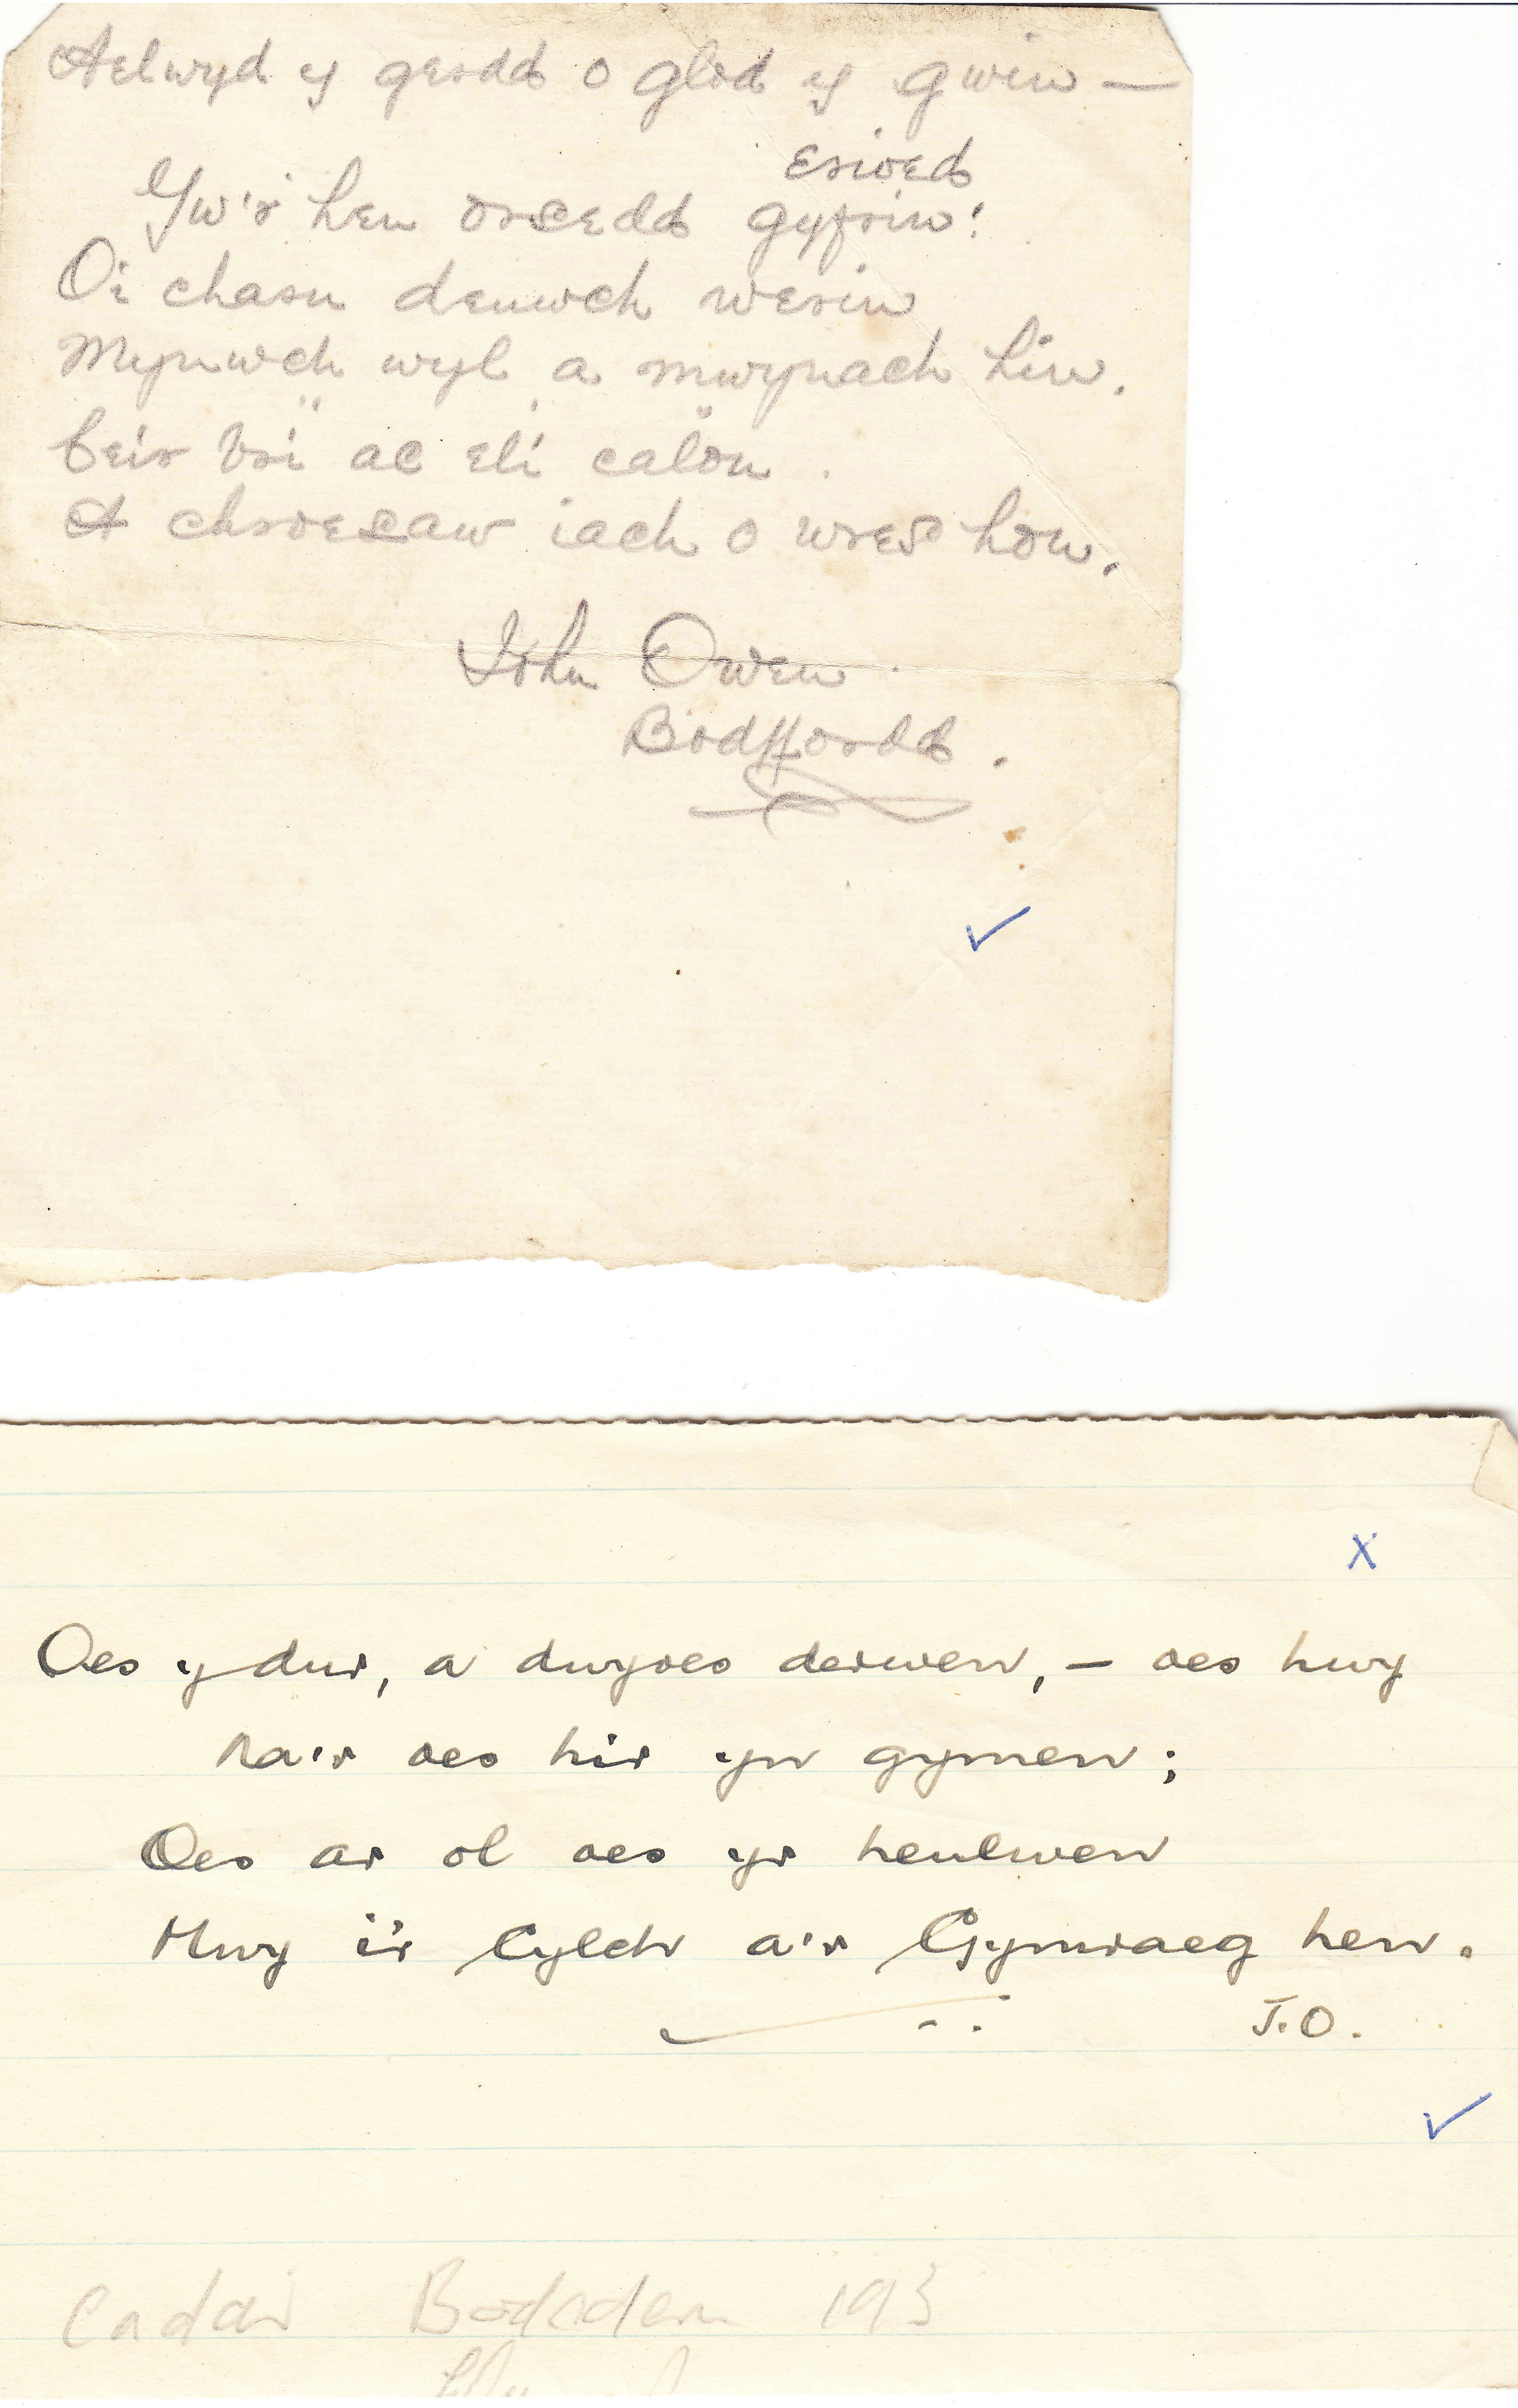 Aelwyd y gerdd o glod y gwin —
erioed
Yw'r hen orsedd gyfrin!
O'i charu deuwch werin
Mynwch wyl a mwynach hin.
Ceir bri ac eli calon.
A chroesaw iach o wres hon.
John Owen
Bodffordd.
Oes y dur, a dwyoes derwen, – oes hwy
Na'r oes hir yn gymen;
Oes ar ol oes yr heulwen
Mwy i'r Cylch a'r Gymraeg hen.
J.O.
X
Cadair Bodedern 193